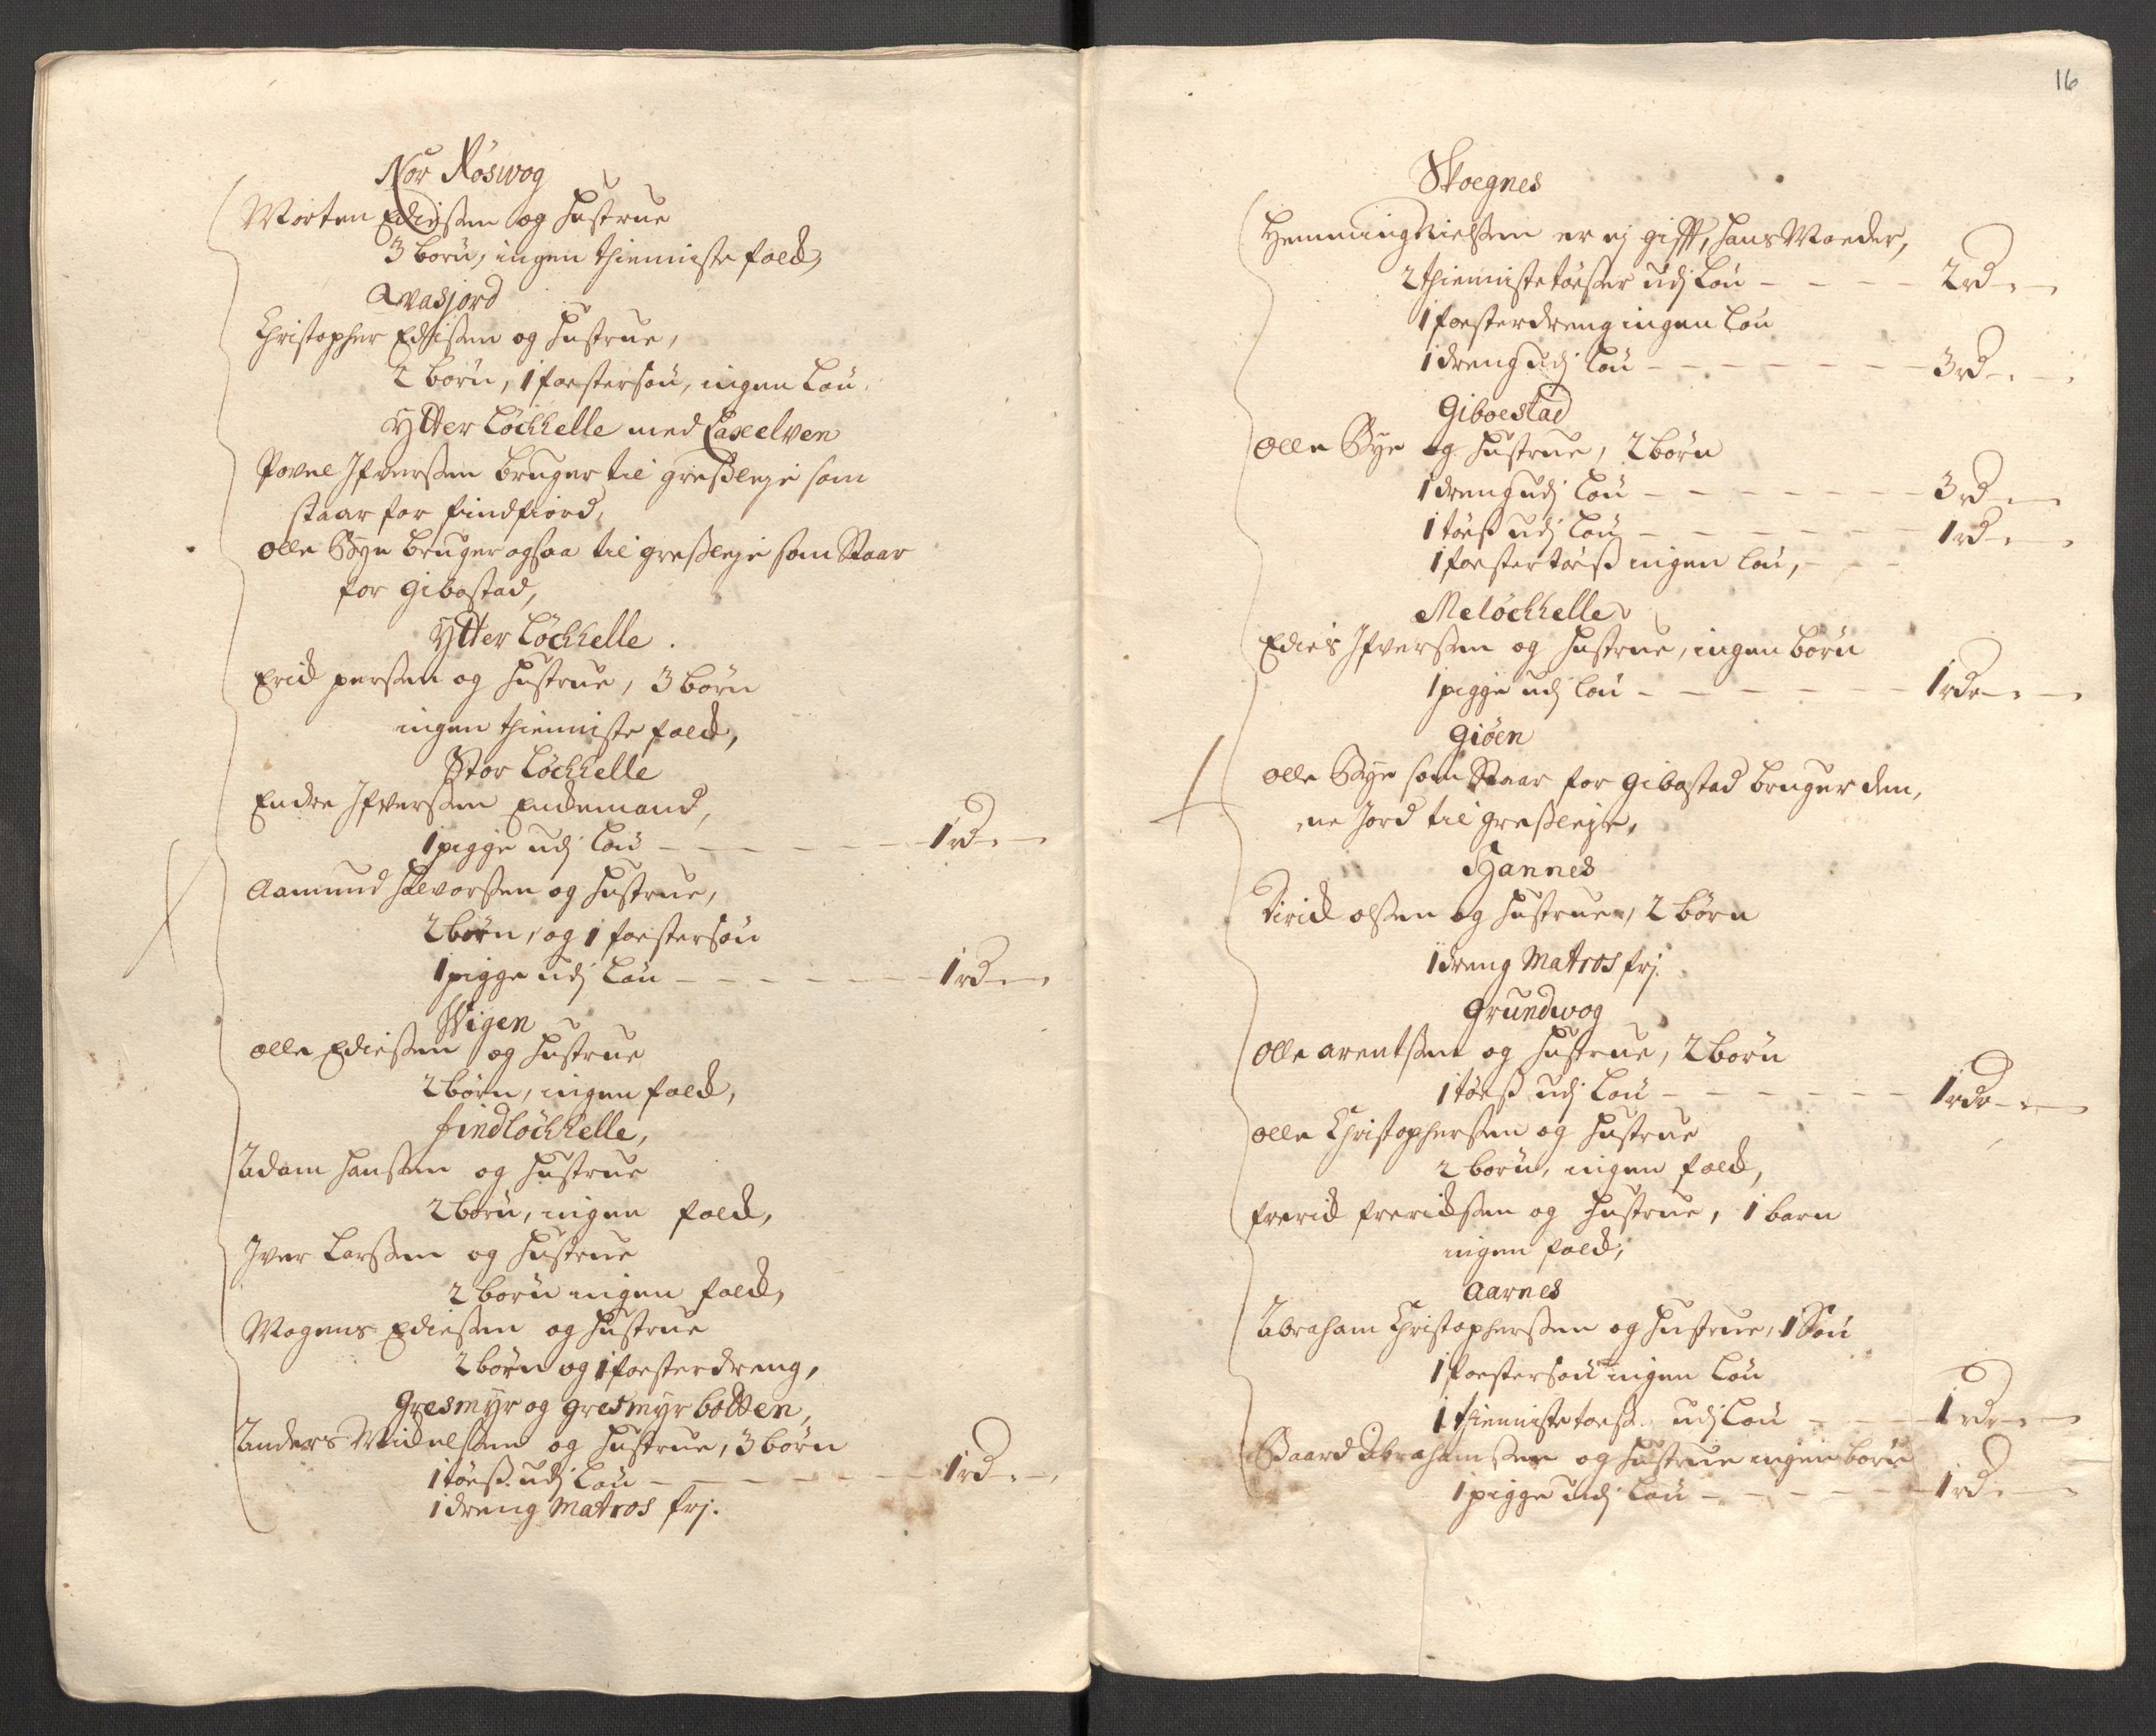 Nor Röswog
Morten Ediessen og hustrue
3 börn, ingen thienniste folck,
Qvasjord
Christopher Edissen og hustrue,
2 börn, 1 foestersön, ingen Lön
Ytter Löchhelle med Laxelven
Povel Ifverssen bruger til gresleye som
staar for findfiord,
Olle Bye bruger ogsaa til gresleye som Staar
for gibostad,
Ytter Löchhelle.
Erick perssen og hustrue, 3 börn
ingen thienniste folck,
Stor Löchhelle
Endre Ifverssen Enckemand,
1 pigge udj Lön - - - - 1 rd - -
Aamund Halvorssen og hustrue,
2 börn, og 1 foestersön
1 pigge udj Lön - - - - 1 rd - -
Wigen
Olle Ediessen og hustrue
2 börn, ingen folck,
findlöchhelle,
Adam hanssen og hustrue
2 börn, ingen folck,
Iver Larssen og hustrue
2 börn ingen folck,
Mogens Ediessen og hustrue
2 börn og 1 foesterdreng,
Gresmyr og gresmyrbotten,
Anders Mickelssen og hustrue, 3 börn
1 töes udj Lön - - - - 1 rd - -
1 dreng Matros frj.
16
Skoegnes
Hemming Nielssen er ej gifft, hans Moeder,
2 thiennistetöesser udj Lön - - - 2 rd - -
1 foesterdreng ingen Lön
1 dreng udj Lön - - - - 3 rd - -
Giboestad
Olle Bye og hustrue, 2 börn
1 dreng udj Lön - - - - 3 rd - -
1 töes udj Lön - - - - 1 rd - -
1 foestertöes ingen Lön,
Melöchhelle
Edies Ifverssen og hustrue, ingen börn
1 pigge udj Lön - - - - 1 rdr - -
Giöen
Olle Bye som Staar for gibostad bruger den,
ne Jord til gresleye,
Hannes
Dirick olssen og hustrue, 2 börn
1 dreng Matros frj.
Grundwog
Olle arentssen og hustrue, 2 börn
1 töes udj Lön - - - - 1 rdr - -
Olle Christopherssen og hustrue
2 börn, ingen folck,
frerick frerickssen og hustrue, 1 barn
ingen folck,
Aarnes
Abraham Christopherssen og hustrue, 1 Sön
1 foestersön ingen Lön
1 thiennistetoes udj Lön - - - 1 rdr - -
Baard Abrahamssen og hustrue ingen börn
1 pigge udj Lön - - - - 1 rd - -